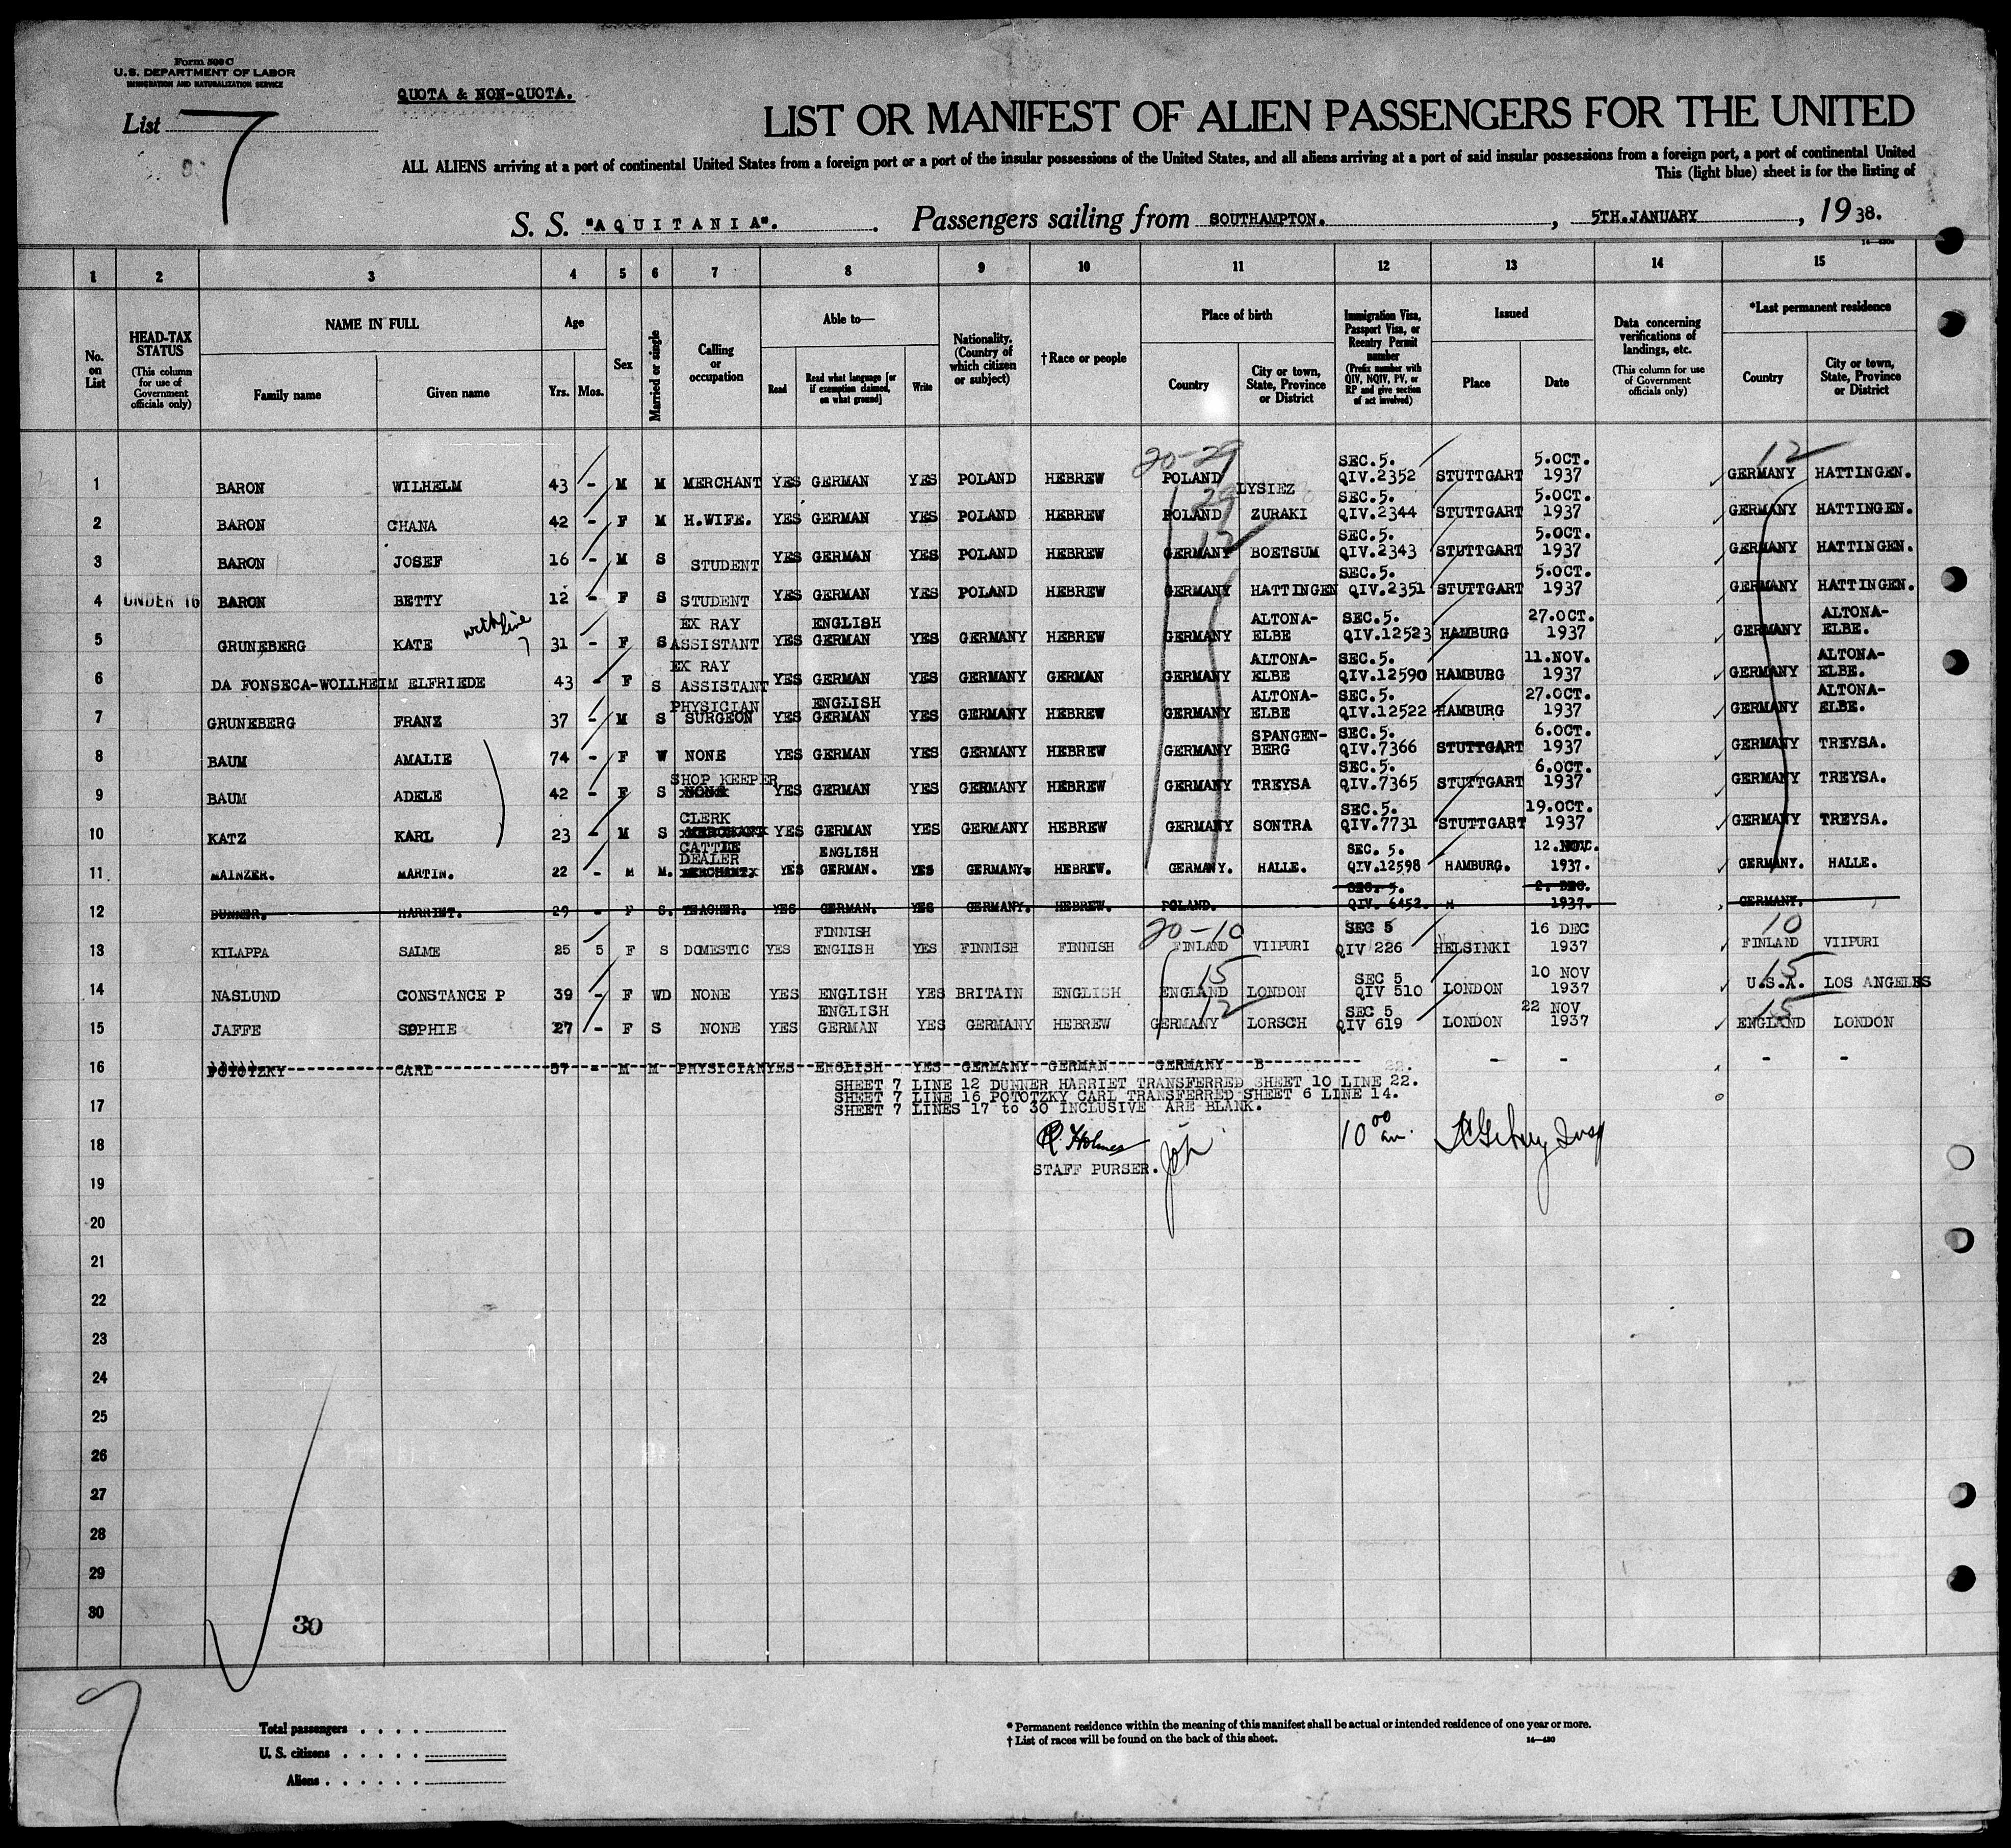 Form 500 C
U.S. DEPARTMENT OF LABOR
IMMIGRATION AND NATURALIZATION SERVICE
QUOTA & NON-QUOTA.
List 7
LIST OR MANIFEST OF ALIEN PASSENGERS FOR THE UNITED
ALL ALIENS arriving at a port of continental United States from a foreign port or a port of the insular possessions of the United States, and all aliens arriving at a port of said insular possessions from a foreign port, a port of continental United
This (light blue) sheet is for the listing of
S. S. "AQUITANIA". Passengers sailing from SOUTHAMPTON. , 5TH.JANUARY , 1938.
1 2 3 4 5 6 7 8 9 10 11 12 13 14 15
No. on List
HEAD-TAX STATUS (This column for use of Government officials only)
NAME IN FULL
Family name Given name
Age
Yrs. Mos.
Sex
Married or single
Calling or occupation
Able to—
Read Read what language [or if exemption claimed, on what ground] Write
Nationality. (Country of which citizen or subject)
† Race or people
Place of birth
Country City or town, State, Province or District
Immigration Visa, Passport Visa, or Reentry Permit number (Prefix number with QIV, NQIV, PV, or RP and give section of act involved)
Issued
Place Date
Data concerning verifications of landings, etc. (This column for use of Government officials only)
*Last permanent residence
Country City or town, State, Province or District
20-29 12
1 BARON WILHELM 43 - M M MERCHANT YES GERMAN YES POLAND HEBREW POLAND LYSIEZ SEC.5. QIV.2352 STUTTGART 5.OCT. 1937 GERMANY HATTINGEN.
29
2 BARON CHANA 42 - F M H.WIFE. YES GERMAN YES POLAND HEBREW POLAND ZURAKI SEC.5. QIV.2344 STUTTGART 5.OCT. 1937 GERMANY HATTINGEN.
12
3 BARON JOSEF 16 - M S STUDENT YES GERMAN YES POLAND HEBREW GERMANY BOETSUM SEC.5. QIV.2343 STUTTGART 5.OCT. 1937 GERMANY HATTINGEN.
4 UNDER 16 BARON BETTY 12 - F S STUDENT YES GERMAN YES POLAND HEBREW GERMANY HATTINGEN SEC.5. QIV.2351 STUTTGART 5.OCT. 1937 GERMANY HATTINGEN.
5 GRUNEBERG KATE with line 7 31 - F S EX RAY ASSISTANT YES ENGLISH GERMAN YES GERMANY HEBREW GERMANY ALTONA-ELBE SEC.5. QIV.12523 HAMBURG 27.OCT. 1937 GERMANY ALTONA-ELBE.
6 DA FONSECA-WOLLHEIM ELFRIEDE 43 - F S EX RAY ASSISTANT YES GERMAN YES GERMANY GERMAN GERMANY ALTONA-ELBE SEC.5. QIV.12590 HAMBURG 11.NOV. 1937 GERMANY ALTONA-ELBE.
7 GRUNEBERG FRANZ 37 - M S PHYSICIAN SURGEON YES ENGLISH GERMAN YES GERMANY HEBREW GERMANY ALTONA-ELBE SEC.5. QIV.12522 HAMBURG 27.OCT. 1937 GERMANY ALTONA-ELBE.
8 BAUM AMALIE 74 - F W NONE YES GERMAN YES GERMANY HEBREW GERMANY SPANGENBERG SEC.5. QIV.7366 STUTTGART 6.OCT. 1937 GERMANY TREYSA.
9 BAUM ADELE 42 - F S SHOP KEEPER NONE YES GERMAN YES GERMANY HEBREW GERMANY TREYSA SEC.5. QIV.7365 STUTTGART 6.OCT. 1937 GERMANY TREYSA.
10 KATZ KARL 23 - M S CLERK MERCHANT YES GERMAN YES GERMANY HEBREW GERMANY SONTRA SEC.5. QIV.7731 STUTTGART 19.OCT. 1937 GERMANY TREYSA.
11 MAINZER. MARTIN. 22 - M M. CATTLE DEALER MERCHANT YES ENGLISH GERMAN. YES GERMANY. HEBREW. GERMANY. HALLE. SEC. 5. QIV.12598 HAMBURG. 12.NOV. 1937. GERMANY. HALLE.
12 DUNNER. HARRIET. 29 - F S. TEACHER. YES GERMAN. YES GERMANY. HEBREW. POLAND. SEC. 5. QIV. 6452. H 2. DEC. 1937. GERMANY.
20-10 10
13 KILAPPA SALME 25 5 F S DOMESTIC YES FINNISH ENGLISH YES FINNISH FINNISH FINLAND VIIPURI SEC 5 QIV 226 HELSINKI 16 DEC 1937 FINLAND VIIPURI
15 15
14 NASLUND CONSTANCE P 39 - F WD NONE YES ENGLISH YES BRITAIN ENGLISH ENGLAND LONDON SEC 5 QIV 510 LONDON 10 NOV 1937 U.S.A. LOS ANGELES
12 15
15 JAFFE SOPHIE 27 - F S NONE YES ENGLISH GERMAN YES GERMANY HEBREW GERMANY LORSCH SEC 5 QIV 619 LONDON 22 NOV 1937 ENGLAND LONDON
16 POTOTZKY CARL 57 - M M PHYSICIAN YES ENGLISH YES GERMANY GERMAN GERMANY B - - - -
SHEET 7 LINE 12 DUNNER HARRIET TRANSFERRED SHEET 10 LINE 22.
SHEET 7 LINE 16 POTOTZKY CARL TRANSFERRED SHEET 6 LINE 14.
17 SHEET 7 LINES 17 to 30 INCLUSIVE ARE BLANK.
18 R. Holmes 10 00 am.
STAFF PURSER.
19
20
21
22
23
24
25
26
27
28
29
30
30
Total passengers . . . .
U. S. citizens . . . . .
Aliens . . . . . .
* Permanent residence within the meaning of this manifest shall be actual or intended residence of one year or more.
† List of races will be found on the back of this sheet. 14—430